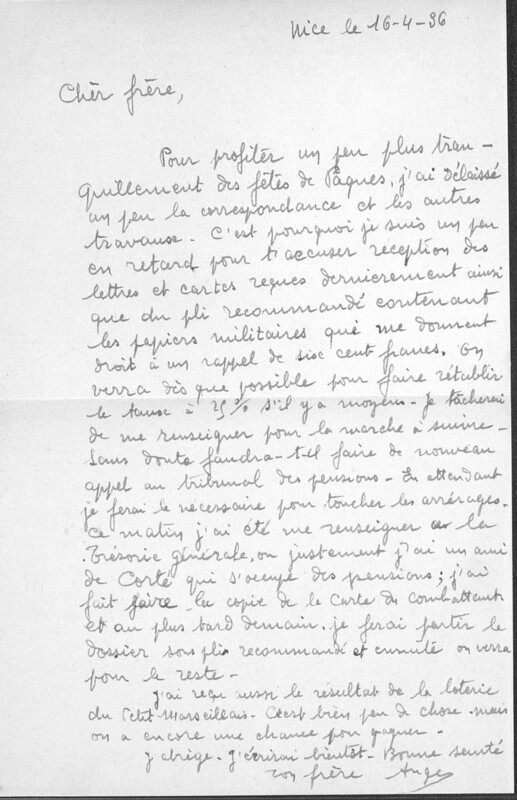 Nice le 16-4-36
Chèr frère,
Pour profiter un peu plus tran-
quillement des fêtes de Pâques, j'ai délaissé
un peu la correspondance et les autres
travause. C'est pourquoi je suis un peu
en retard pour t'accuser reception des
lettres et cartes reçues dernierement ainsi
que du pli recommandé contenant
les papiers militaires qui me donnent
droit à un rappel de sisc cent francs. On
verra dès que possible pour faire rétablir
le tause à 25% s'il y a moyen. Je tâcherai
de me renseigner pour la marche à suivre.
Sans doute faudra-t-il faire de nouveau
appel au tribunal des pensions - En attendant
je ferai le nécessaire pour toucher les arrérages.
Ce matin j'ai été me renseigner à la
Trésorie générale, ou justement j'ai un ami
de Corte qui s'occupe des pensions; j'ai
fait faire la copie de la carte du combattant
et au plus tard demain je ferai partir le
dossier sous pli recommandé et ensuite on verra
pour le reste -
J'ai reçu aussi le résultat de la loterie
du Petit Marseillais. C'est bien peu de chose mais
on a encore une chance pour gagner -
J'abrège. J'écrirai bientôt - Bonne santé
ton frère Ange